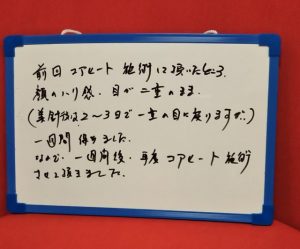 前回 コアヒート 施術して頂いたところ、
顔のハリ感、目が二重のまま
(美顔後は2〜3日で一重の目に戻りますが)
一週間保ちました。
なので、一週間後、再度コアヒート施術
させて頂きました。